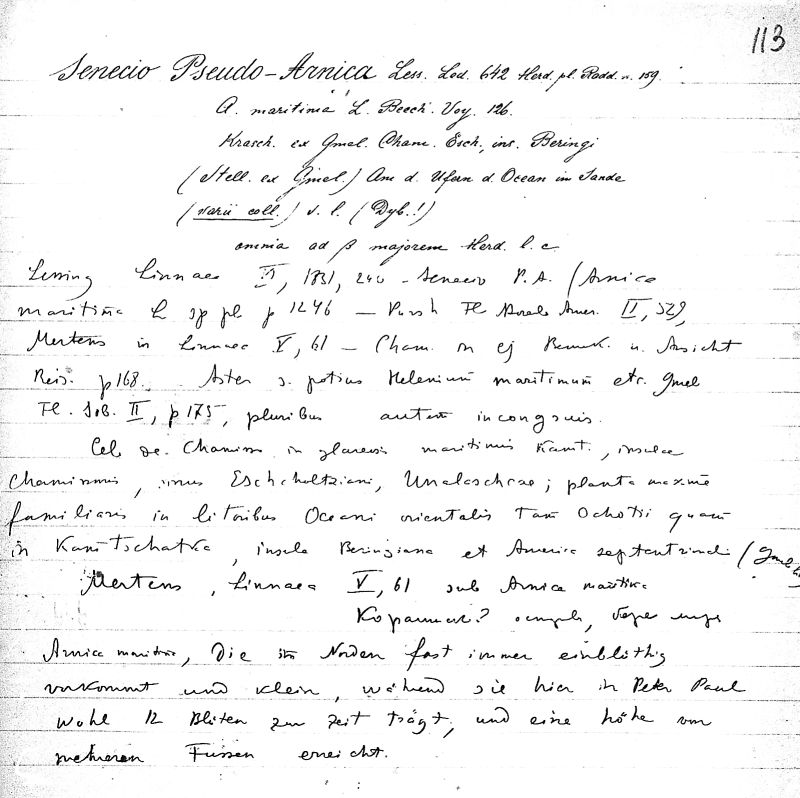 113
Senecio Pseudo-Arnica Less. Led. 642 Herd. pl. Radd. n. 159.
A. maritima L. Beech. Voy. 126.
Krasch. ex Gmel. Cham. Esch., ins. Beringi
(Stell. ex Gmel.) Am d. Ufern d. Ocean im Sande
(varii coll.) v. l. (Dyb.!)
omnia ad β majorem Herd. l. c.
Lessing Linnaea VI, 1831, 240 - Senecio P. A. (Arnica
maritima L sp pl p 1246 — Pursh Fl Boreal Amer. II, 529,
Mertens in Linnaea V, 61 — Cham. in ej Bemerk. u. Ansicht
Reis. p 168. Aster s. potius Helenium maritimum etc. Gmel
Fl. Sib. II, p 175, pluribus autem incongruis.
Cel de Chamisso in glareosis maritimis Kamt., insulae
Chamissonis, sinus Eschholtziani, Unalaschcae; planta maxime
familiaris in litoribus Oceani orientalis tam Ochotii quam
in Kamtschatka, insula Beringiana et America septentrionali (Gmel
Mertens, Linnaea V, 61 sub Arnica maritima
Arnica maritima, die im Norden fast immer einblüthig
vorkommt und klein, während sie hier in Peter Paul
wohl 12 Blüten zur Zeit trägt, und eine höhe von
mehreren Fussen erreicht.